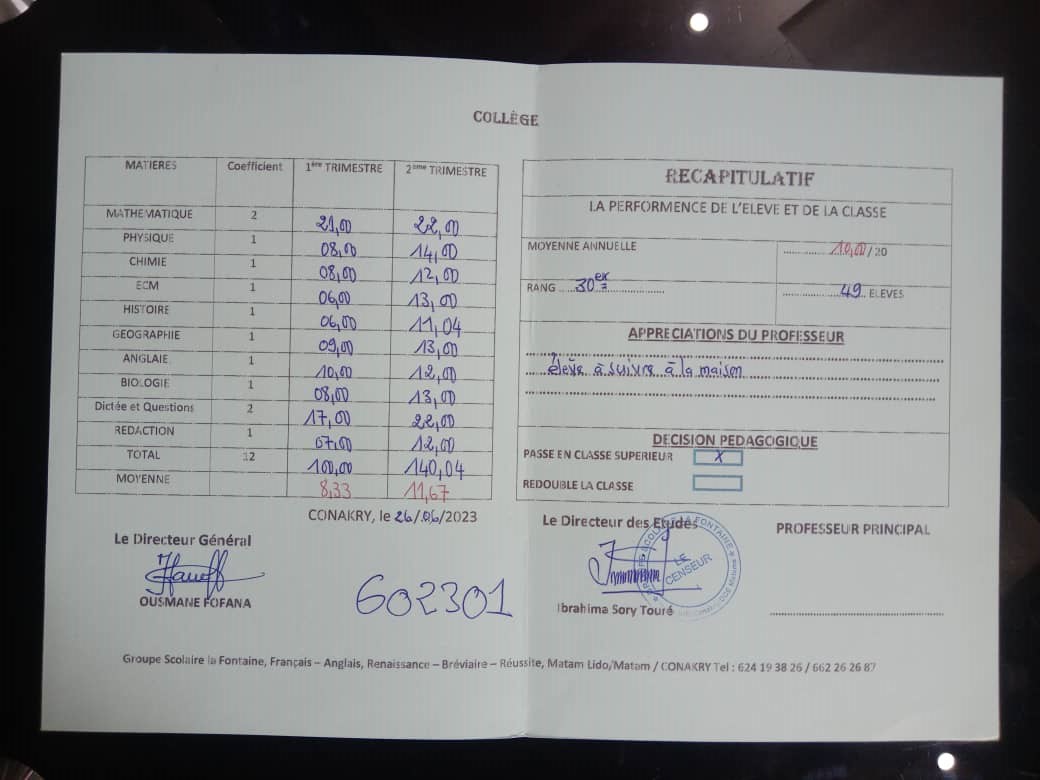 COLLÈGE
MATIERES Coefficient 1ère TRIMESTRE 2ème TRIMESTRE
MATHEMATIQUE 2 21,00 22,00
PHYSIQUE 1 08,00 14,00
CHIMIE 1 08,00 12,00
ECM 1 06,00 13,00
HISTOIRE 1 06,00 11,04
GEOGRAPHIE 1 09,00 13,00
ANGLAIE 1 10,00 12,00
BIOLOGIE 1 08,00 13,00
Dictée et Questions 2 17,00 22,00
REDACTION 1 07,00 12,00
TOTAL 12 100,00 140,04
MOYENNE 8,33 11,67
CONAKRY, le 26/06/2023
Le Directeur Général
OUSMANE FOFANA
602301
RECAPITULATIF
LA PERFORMENCE DE L'ELEVE ET DE LA CLASSE
MOYENNE ANNUELLE 10,00/20
RANG 30ex 49 ELEVES
APPRECIATIONS DU PROFESSEUR
élève à suivre à la maison
DECISION PEDAGOGIQUE
PASSE EN CLASSE SUPERIEUR X
REDOUBLE LA CLASSE
Le Directeur des Etudes
PROFESSEUR PRINCIPAL
LE CENSEUR
LA FONTAINE
Ibrahima Sory Touré
Groupe Scolaire la Fontaine, Français – Anglais, Renaissance – Bréviaire – Réussite, Matam Lido/Matam / CONAKRY Tel : 624 19 38 26 / 662 26 26 87